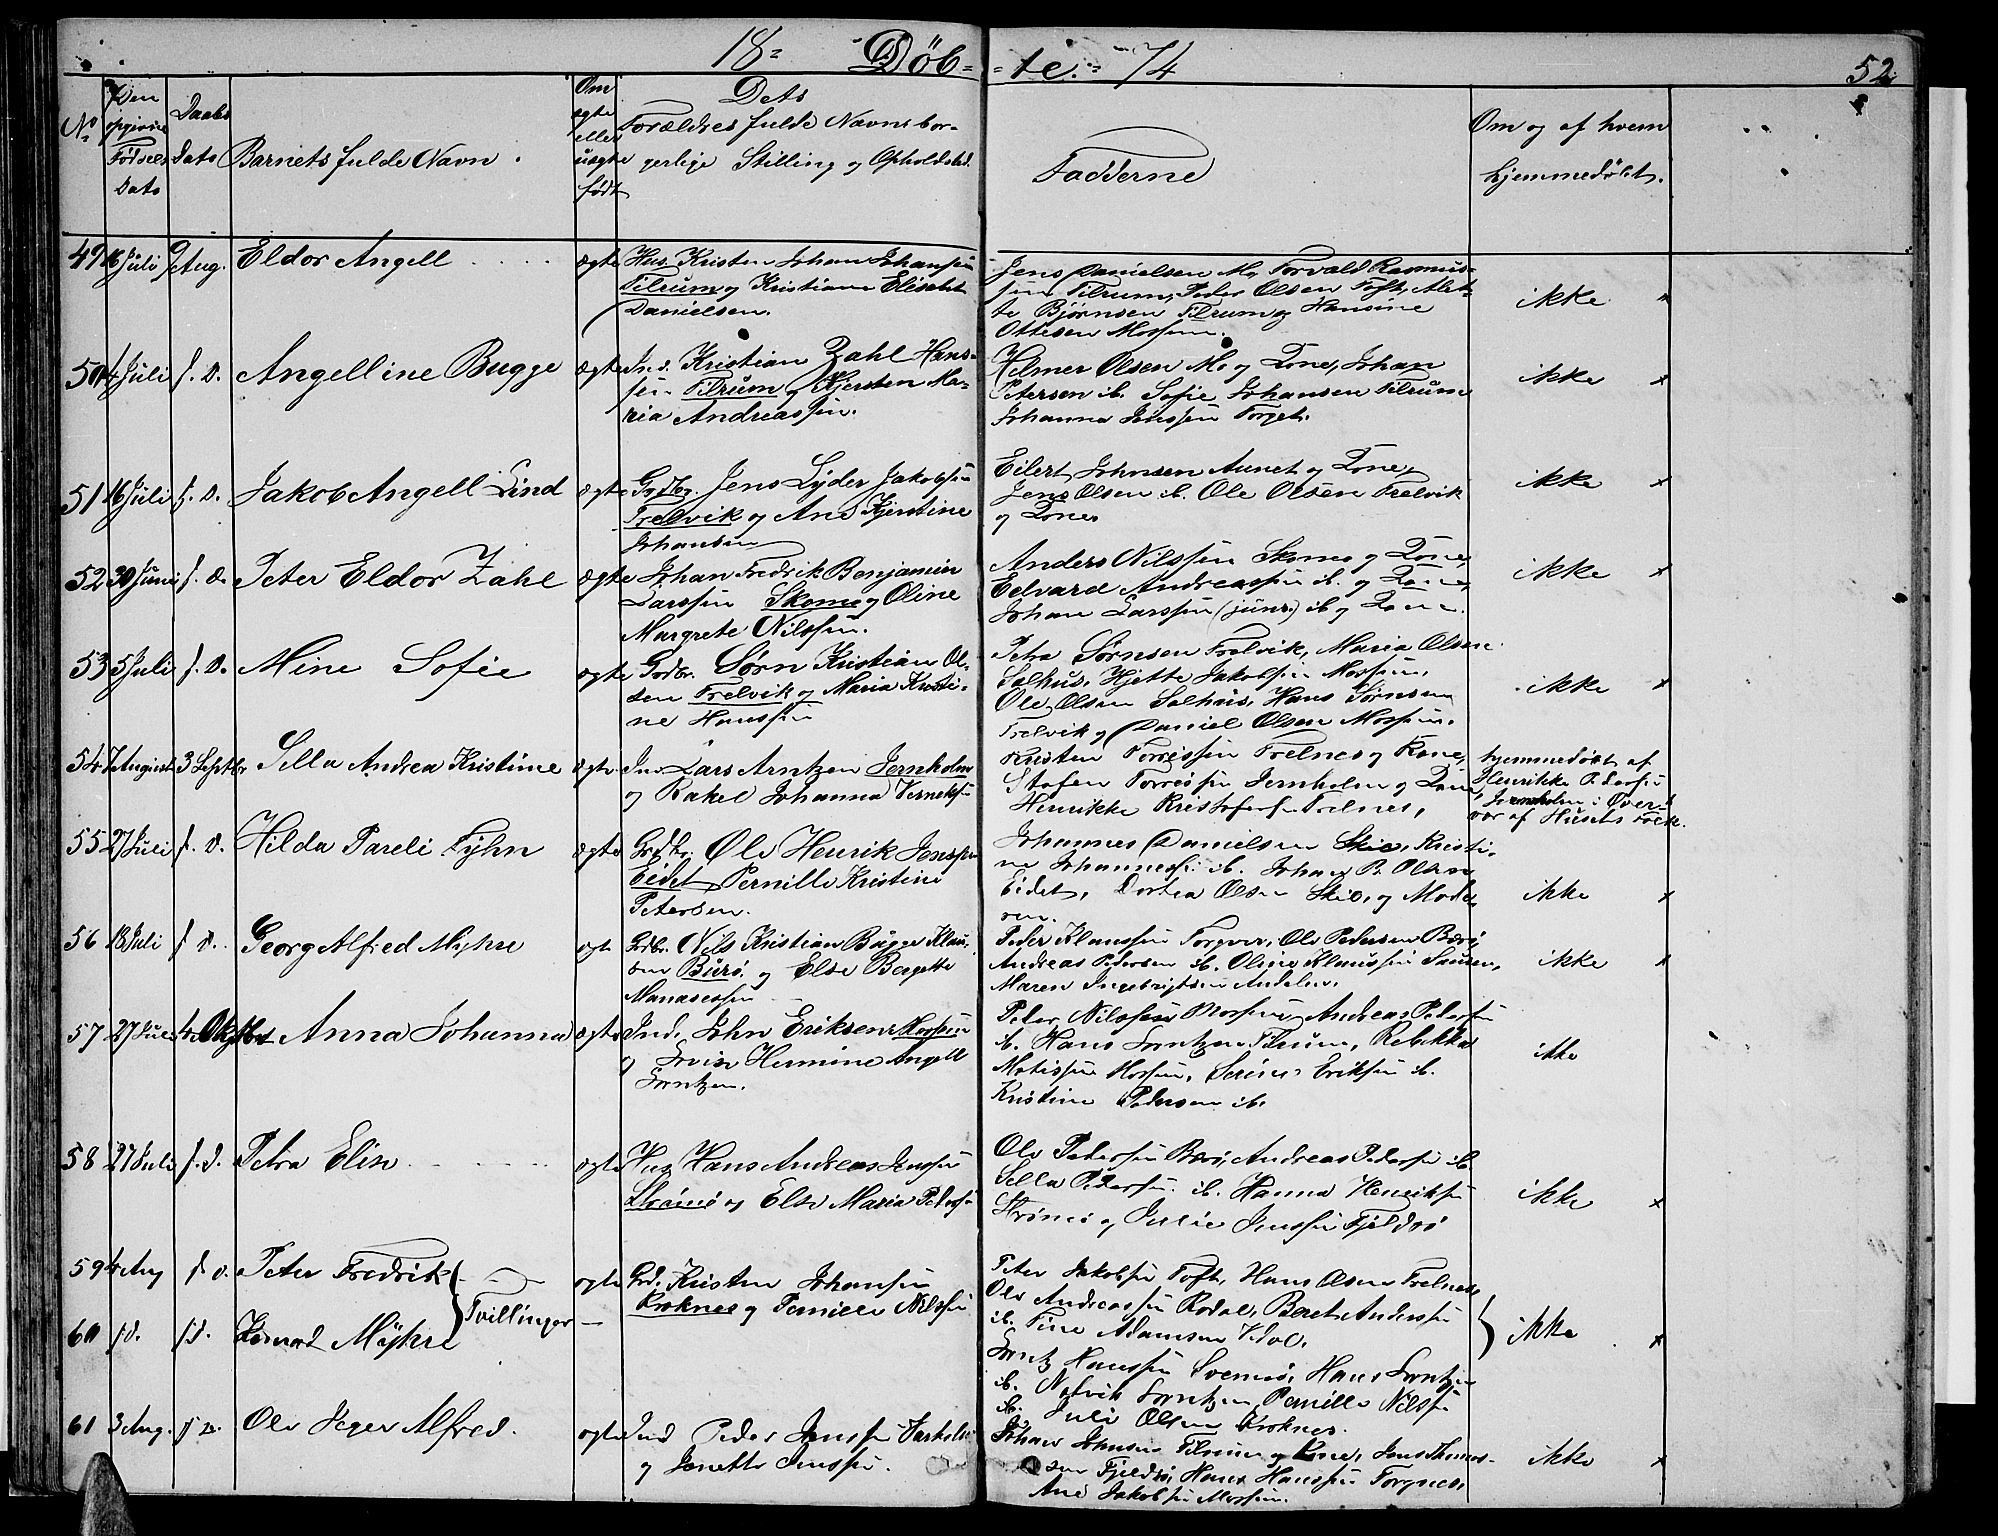 18= Döb= =te.= 74
52
No
Den opgivne Fødsels Dato
Daabs Dato
Barnets fulde Navn.
Om ægte eller uægte født
Dets
Forældres fulde Navne bor-
gerlige Stilling og Opholdsted.
Fadderne
Om og af hvem
hjemmedøbt.
49 16 Juli 9 Aug. Eldor Angell ægte Hus. Kristen Johan Johansen
Tilrum og Kristiane Elisabet
Danielsen.
Jens Danielsen Mo, Torvald Rasmus-
sen Tilrum, Peder Olsen Toft, Alet-
te Bjørnsen Tilrum og Hansine
Ottesen Mossem.
ikke
50 4 Juli s. D. Angelline Bugge ægte Ind. Kristian Zahl Hans-
sen Tilrum og Kjersten Ma-
ria Andreassen.
Helmer Olsen Mo og Kone, Johan
Petersen ib. Sofie Johansen Tilrum
Johanna Jenssen Torget.
ikke
51 16 Juli s. D. Jakob Angell Lind ægte Grdbr. Jens Lyder Jakobsen
Trelvik og Ane Kjerstine
Johansen
Eilert Johnsen Aunet og Kone,
Jens Olsen ib. Ole Olsen Trelvik
og Kone
ikke
52 30 Juni s. D. Peter Eldor Zahl ægte Johan Fredrik Benjamin
Larssen Skomo og Oline
Margrete Nilssen.
Anders Nilssen Skomo og Kone,
Edvard Andreassen ib. og Kone,
Johan Larssen (junr.) ib og Kone.
ikke
53 5 Juli s. D. Mine Sofie ægte Grdbr. Sørn Kristian Ol-
sen Trelvik og Maria Kristi-
ne Hanssen
Petra Sørnsen Trelvik, Maria Olsen
Salhus, Hjette Jakobsen Mossem,
Ole Olsen Salhus, Hans Sørnsen
Trelvik og Daniel Olsen Mossem.
ikke
54 7 August 3 Septbr Sella Andrea Kristine ægte Ind. Lars Arntzen Jernholm
og Rakel Johanna Verniksen
Kristen Torressen Trelnes og Kone,
Stafen Torressen Jernholm og Kone,
Henrikke Kristofersen Trelnes,
hjemmedøbt af
Henrikke Pedersen
Jernholm i Over-
vær af Husets Folk.
55 27 Juli s. D. Hilda Pareli Lyhn ægte Grdbr. Ole Henrik Jenssen
Eidet, Pernille Kristine
Petersen.
Johannes Danielsen Skie, Kristi-
ne Johannessen ib. Johan P. Olsen
Eidet, Dortea Olsen Skie, og Mode-
ren.
ikke
56 18 Juli s. D. Georg Alfred Myhre ægte Grdbr. Nils Kristian Bugge Klau-
sen Burø, og Else Bergette
Manassessen
Peder Klaussen Torgver, Ole Pedersen Bærø,
Andreas Pedersen ib. Oline Klaussen Sausen,
Maren Ingebrigtsen Andalen.
ikke
57 27 Juli 4 Oktober Anna Johanna ægte Ind. John Eriksen Mossem
og Lovise Hermine Angell
Lorntzen.
Peder Nilssen Mossem, Andreas Pedersen
ib. Hans Lorntzen Tilrum, Rebekka
Matissen Mossem, Serine Eriksen ib.
Kristine Pedersen ib.
ikke
58 27 Juli s. d. Petra Elise ægte Hus Hans Andreas Jenssen
og Else Maria Pedersen
Ole Pedersen Bærø, Andreas Pedersen ib
Sella Pedersen ib. Hanna Henriksen
og Julie Jenssen Fjeldsø
ikke
59 4 Aug s. D. Peter Fredrik ægte Grd. Kristen Johansen
Kroknes og Pernille Nilssen
60 s. d. s. d. Myhre Tvillinger
Peter Jakobsen Toft, Hans Olsen Trelnes
Ole Andreassen Rodal, Beret Anderssen
ib. Tine Adamsen
Lorntz Hanssen Svemsø, Hans Lorntzen
ib. Lorntzen, Pernille Nilssen
ib. Julie Olsen Kroknes.
ikke
61 3 Aug. s. D. Ole Alfred. ægte Ind Peder Jenssen
og Jenssen.
Johan Johnsen Tilrum og Kone, Jens Thomas-
sen Fjeldsø, Hans Hanssen Torgnes,
Ane Jakobsen Mossem.
ikke